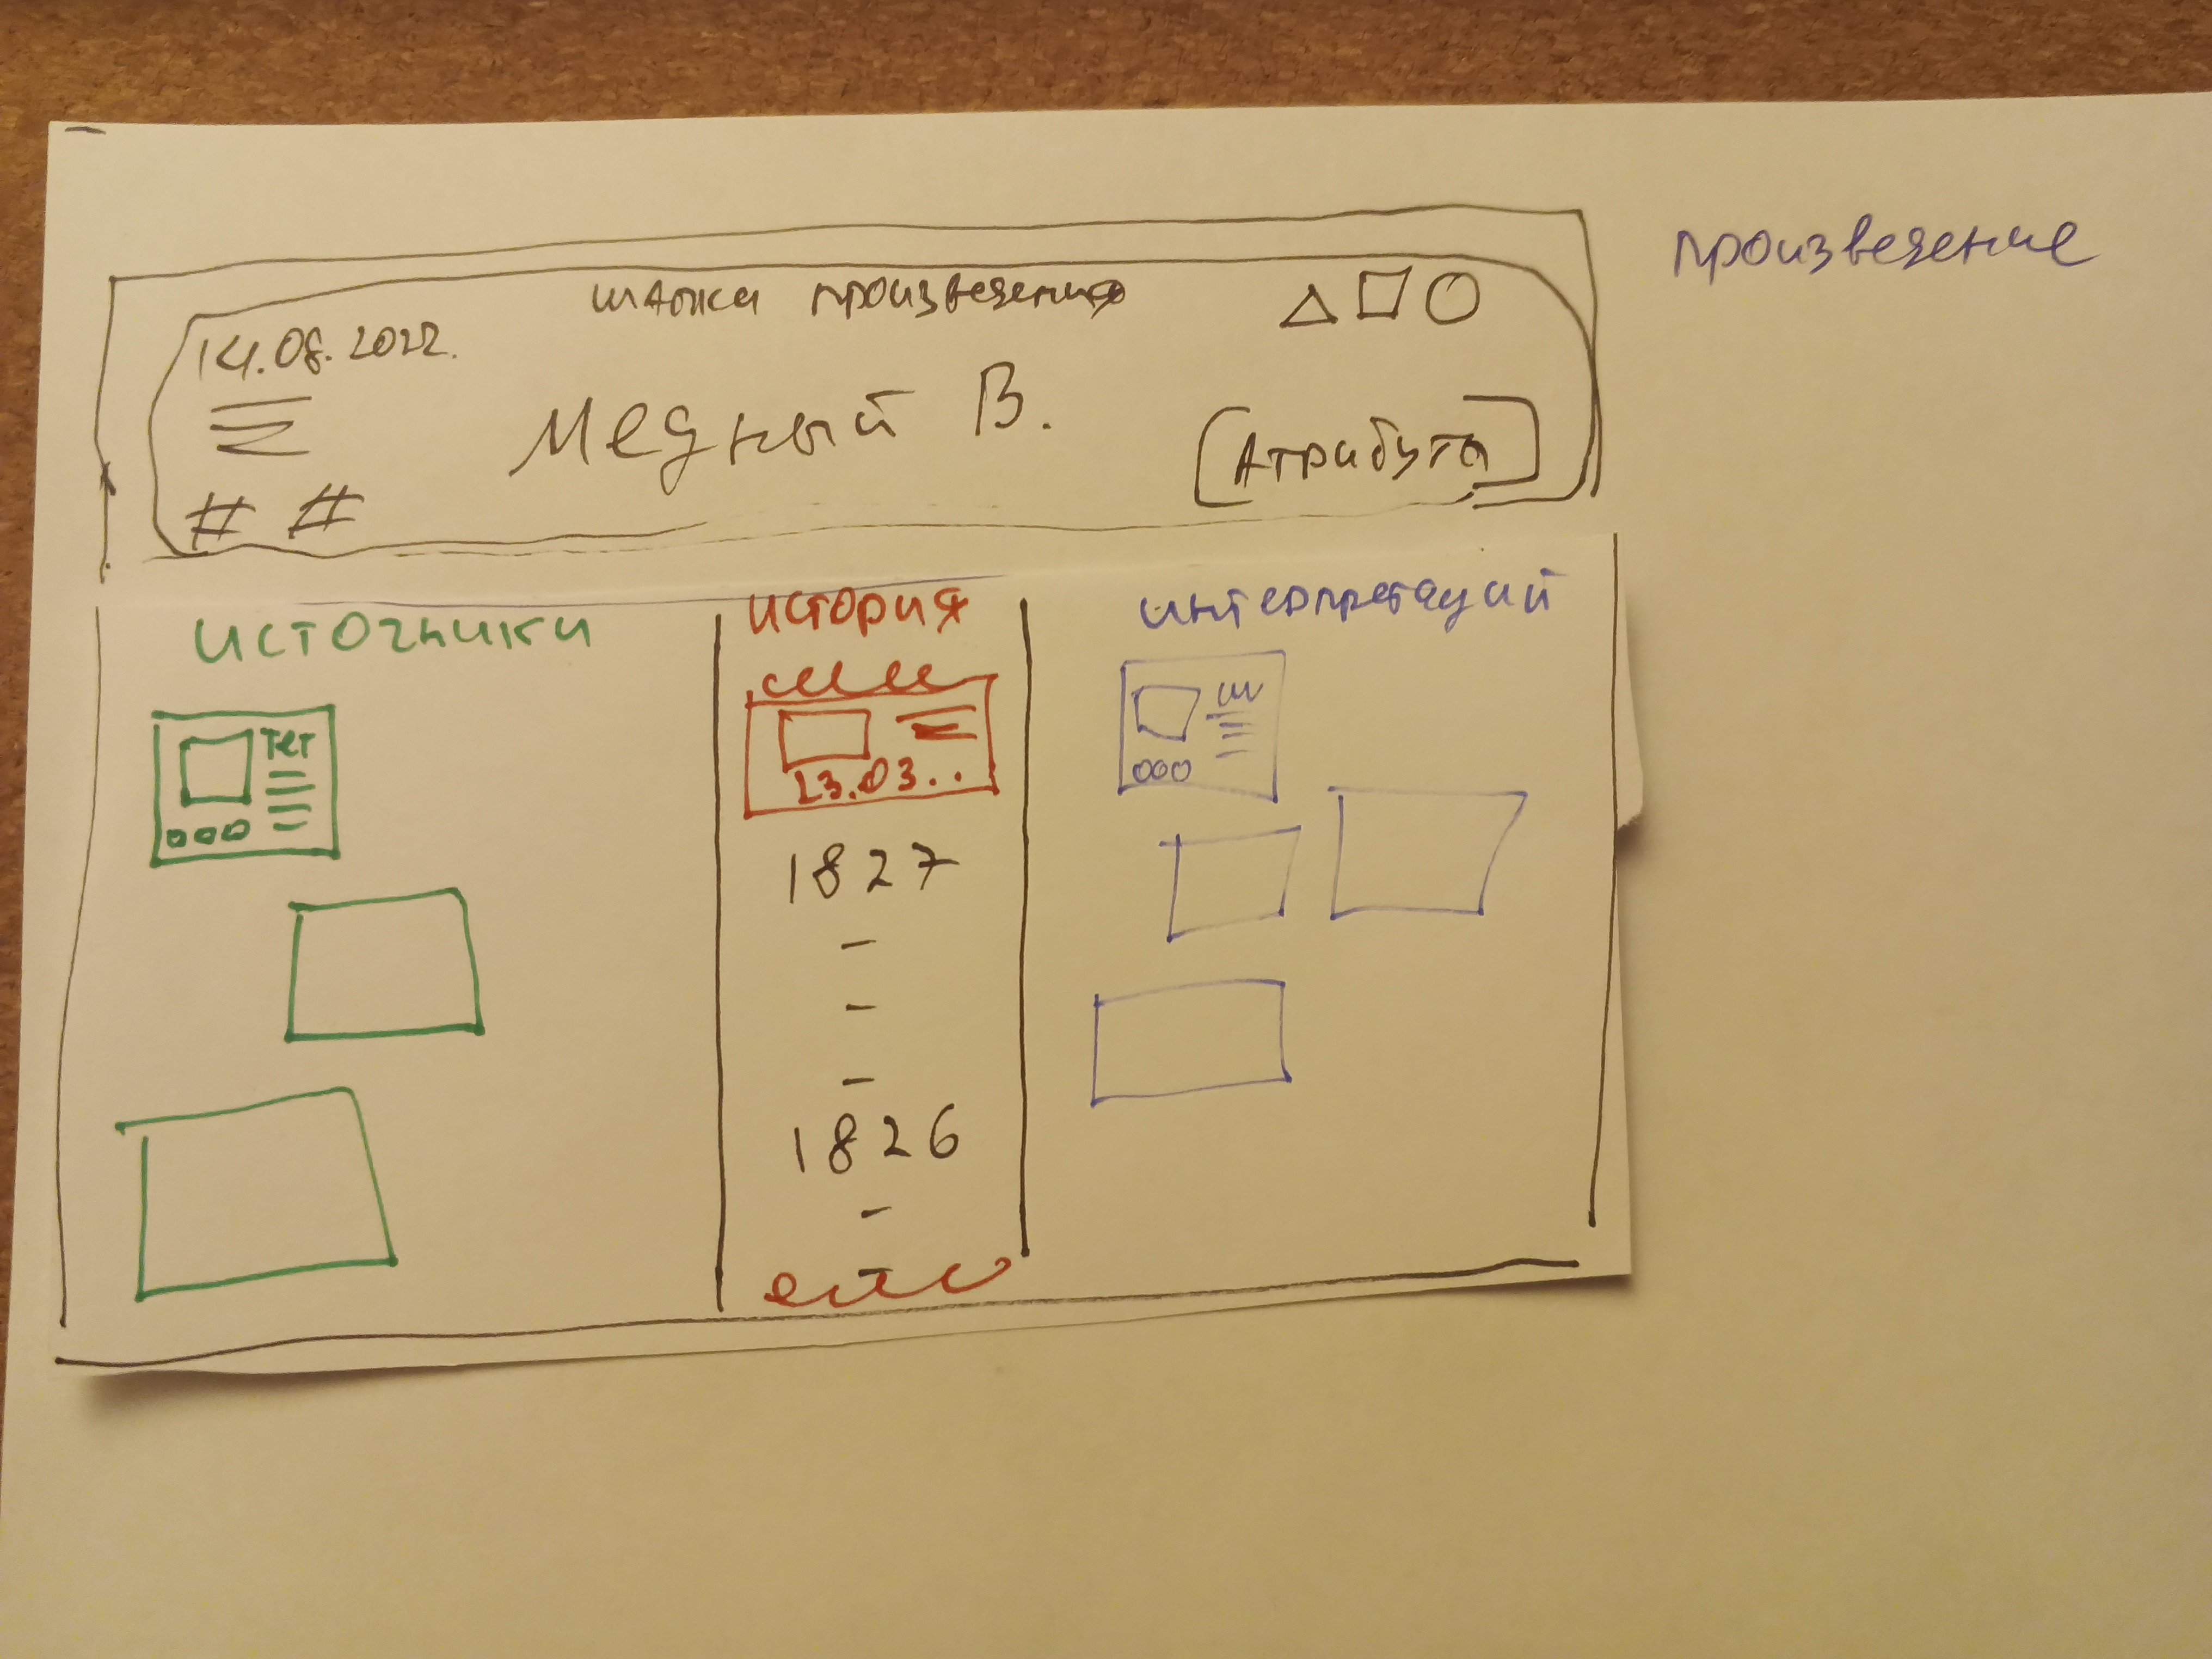 произведение
шапка произведения
14.08.2022.
Медный В.
Атрибуты
# #
источники
история
интерпретаций
тет
23.03..
1827
-
-
-
1826
-
-